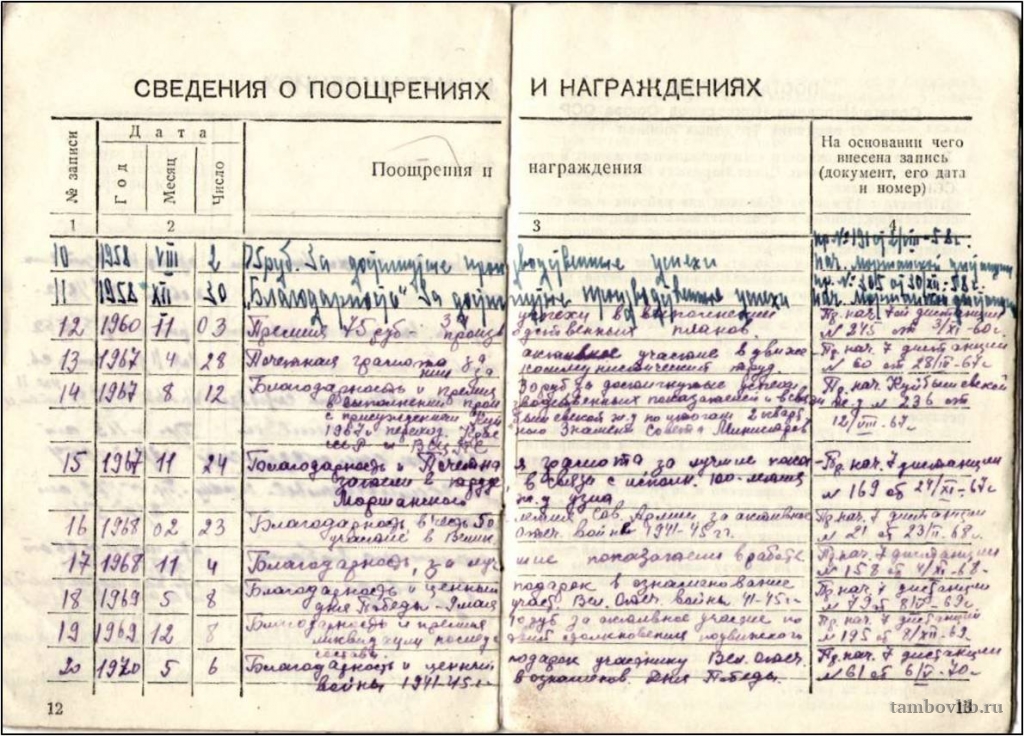 СВЕДЕНИЯ О ПООЩРЕНИЯХ И НАГРАЖДЕНИЯХ
№ записи
Дата
Год
Месяц
Число
Поощрения и награждения
На основании чего
внесена запись
(документ, его дата
и номер)
1 2 3 4
10 1958 VIII 2 75 руб. За производственные успехи пр. № 191 от 2/VIII-58 г.
нач.
11 1958 XII 30 „Благодарность“ За производственные успехи пр. № 305 от 30/XII-58 г.
нач.
12 1960 11 03 Премия 75 руб За успехи в выполнении Пр. нач. 7ой дистанции
производственных планов № 245 от 3/XI-60 г.
13 1967 4 28 Почетная грамота за активное участие в движе Пр. нач. 7 дистанции
нии за коммунистический труд № 60 от 28/IV-67 г.
14 1967 8 12 Благодарность и премия 30 руб за достигнутые успехи Пр. нач. Куйбышевской
в выполнении производственных показателей и в связи ж.д № 236 от
с присуждением Куйбышевской ж.д по итогам 2 кварт. 12/VIII-67 г.
1967 г переход. Красного Знамени Совета Министров
СССР и ВЦСПС
15 1967 11 24 Благодарность и Почетная грамота за лучшие пока Пр. нач. 7 дистанции
затели в труде в связи с исполн. 100-летия № 169 от 24/XI-67 г
Моршанского ж.д узла
16 1968 02 23 Благодарность в честь 50 летия Сов Армии за активное Пр. нач. 7 дистанции
участие в Велик. отеч. войне 1941-45 гг. № 21 от 23/II-68 г.
17 1968 11 4 Благодарность, за лучшие показатели в работе Пр. нач. 7 дистанции
№ 158 от 4/XI-68 г.
18 1969 5 8 Благодарность и ценный подарок в ознаменование Пр. нач. 7 дистанции
дня Победы - 9 мая участ. Вел. Отеч. войны 41-45 гг № 79 от 8/V-69 г.
19 1969 12 8 Благодарность и премия 10 руб за активное участие по Пр. нач. 7 дистанции
ликвидации последствий столкновения подвижного № 195 от 8/XII-69
состава.
20 1970 5 6 Благодарность и ценный подарок участнику Вел. отеч. Пр. нач. 7 дистанции
войны 1941-45 гг в ознамен. Дня Победы. № 61 от 6/V-70 г.
12 13
tambovlib.ru